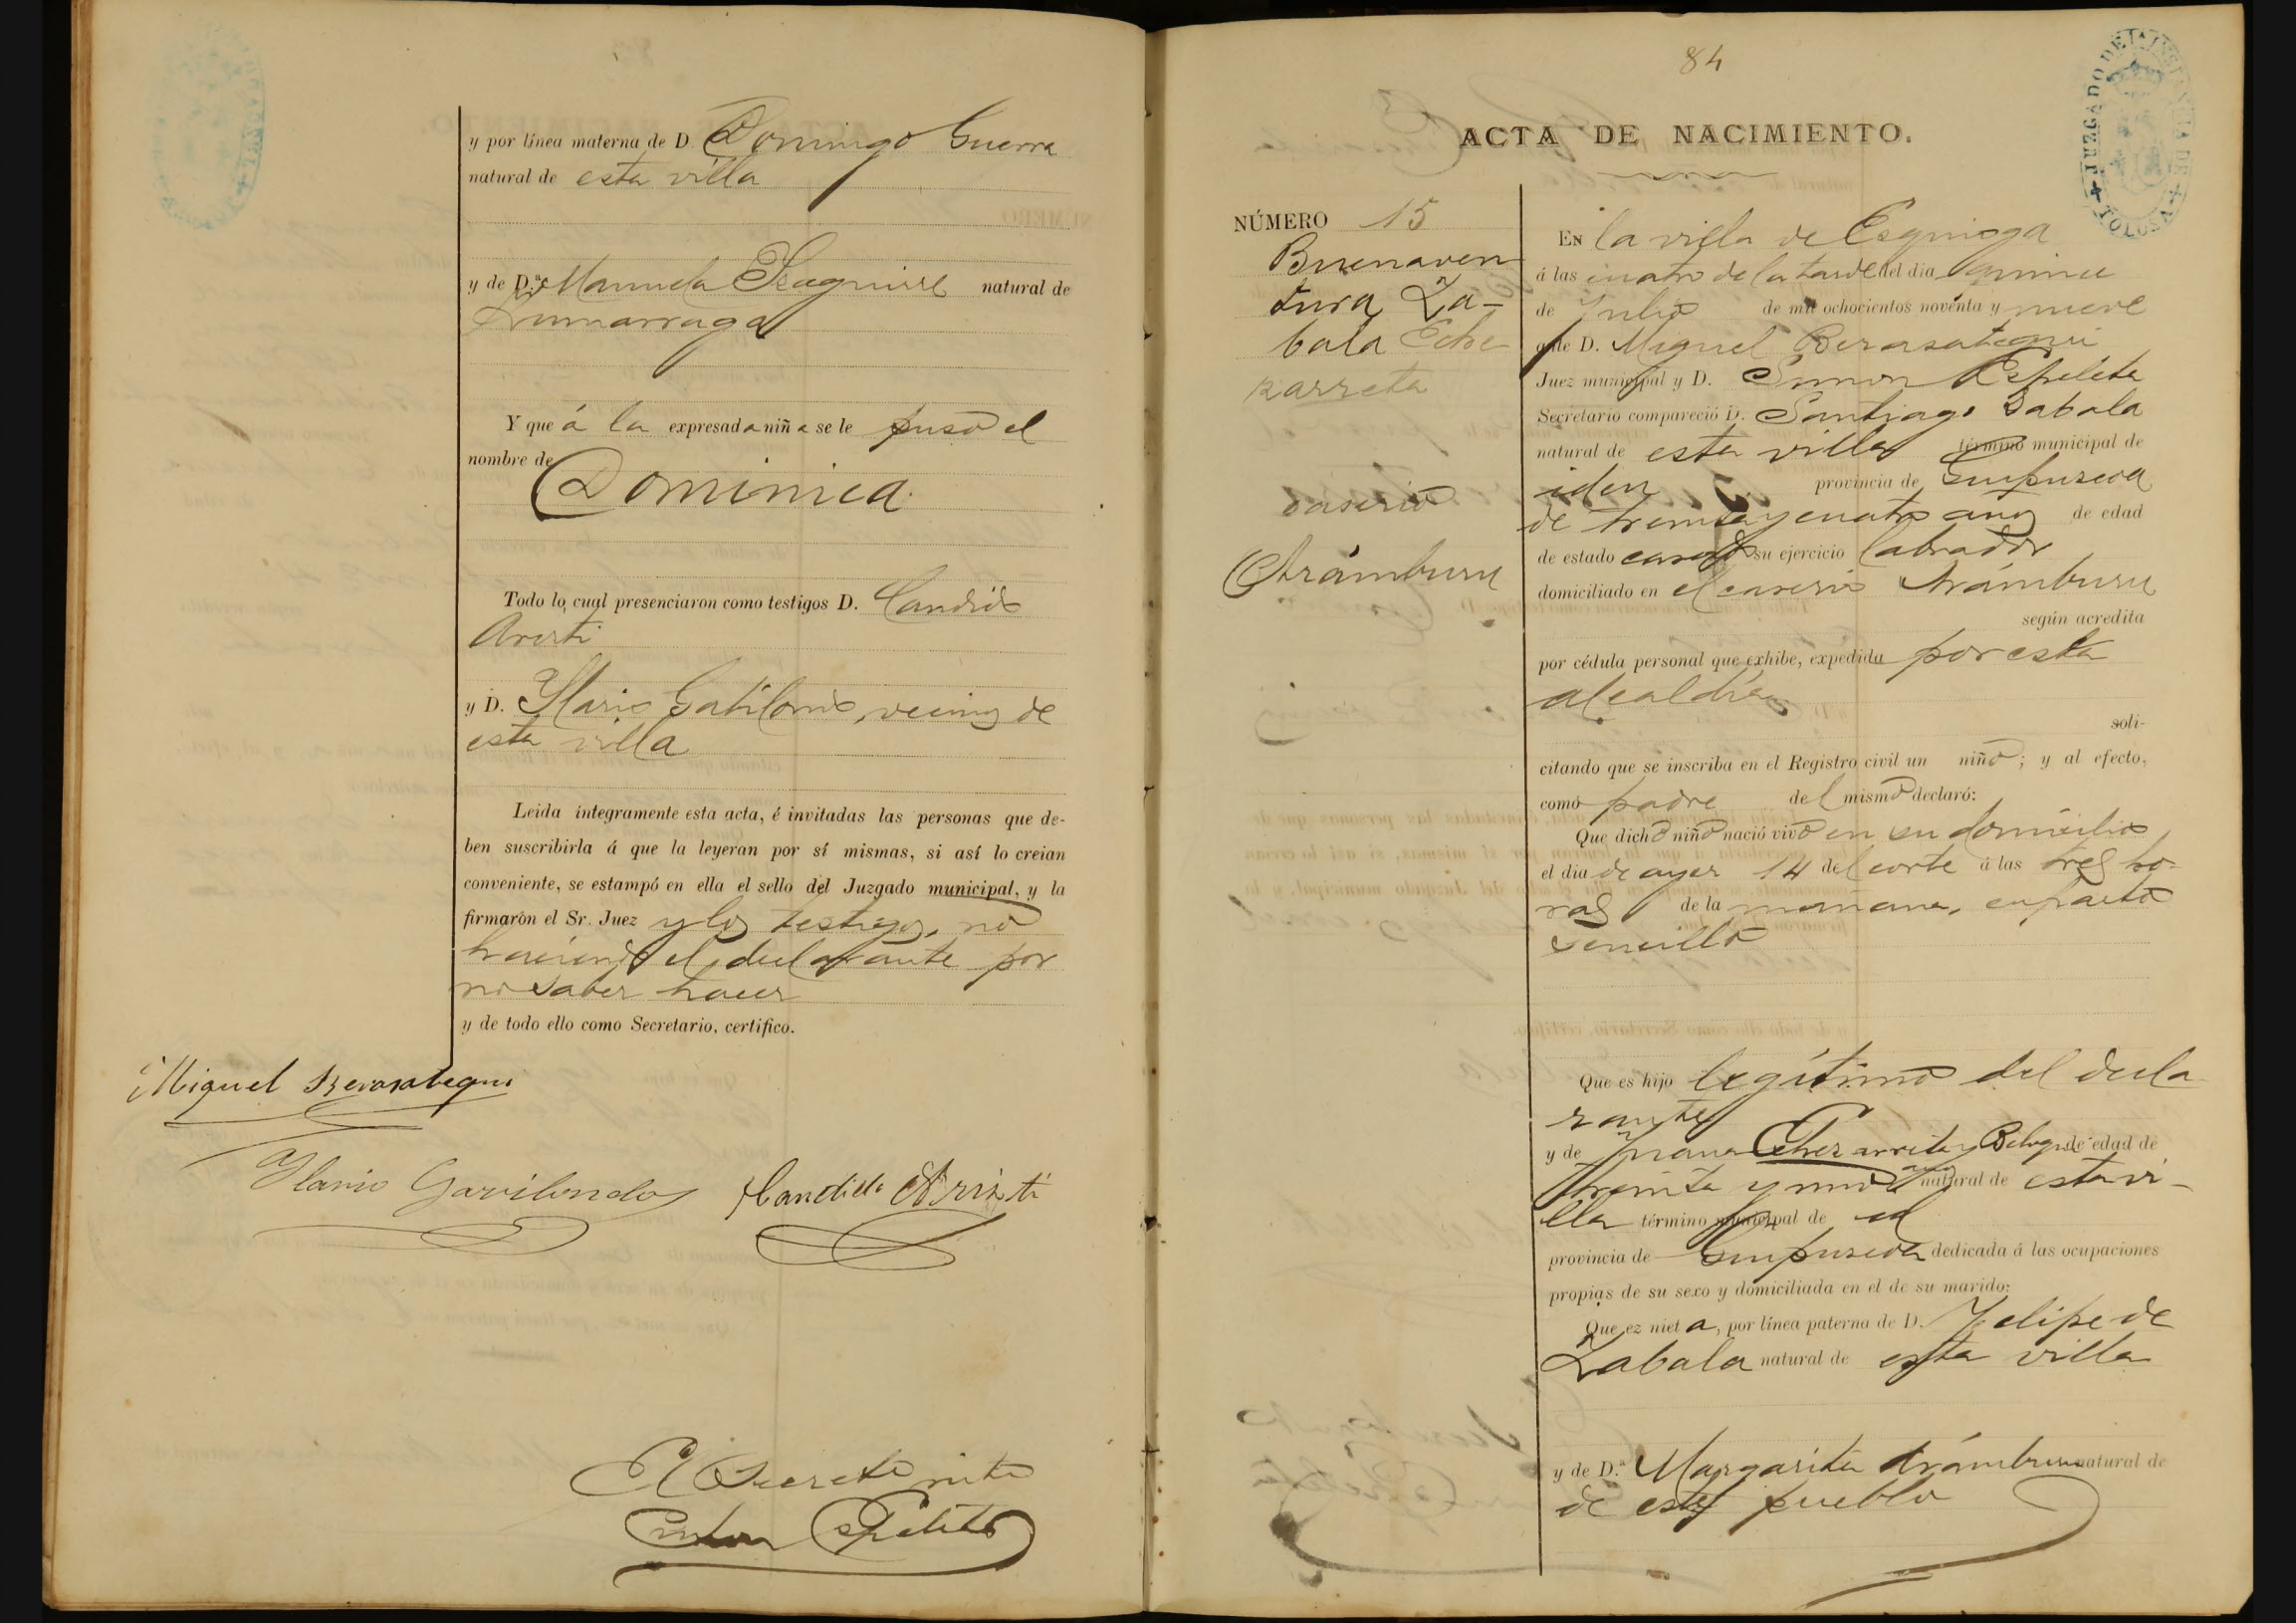 y por línea materna de D. Domingo Guerra
natural de esta villa
y de D.ª Manuela Yzaguirre natural de
Zumarraga
Y que á la expresada niña se le puso el
nombre de
Dominica.
Todo lo cual presenciaron como testigos D. Candido
Aristi
y D. Ylario Gabilondo, vecinos de
esta villa
Leida íntegramente esta acta, é invitadas las personas que de-
ben suscribirla á que la leyeran por sí mismas, si así lo creian
conveniente, se estampó en ella el sello del Juzgado municipal, y la
firmarón el Sr. Juez y los testigos, no
haciendo el declarante por
no saber hacer
y de todo ello como Secretario, certifico.
Miguel Berasategui
Ylario Gavilondo Candido Aristi
El Secretario
Simon Espeleta
84
ACTA DE NACIMIENTO.
JUZGADO DE 1ª INSTANCIA DE TOLOSA
NÚMERO 15
Buenaven
tura Za-
bala Eche
zarreta
Caserio
Arámburu
EN la villa de Ezquioga
á las cuatro de la tarde del dia quince
de Julio de mil ochocientos noventa y nueve
ante D. Miguel Berasategui
Juez municipal y D. Simon Espeleta
Secretario compareció D. Santiago Zabala
natural de esta villa término municipal de
idem provincia de Guipuzcoa
de treinta y cuatro años de edad
de estado casado su ejercicio labrador
domiciliado en el caserio Arámburu
según acredita
por cédula personal que exhibe, expedida por esta
alcaldía
soli-
citando que se inscriba en el Registro civil un niño; y al efecto,
como padre del mismo declaró:
Que dicho niño nació vivo en su domicilio
el dia de ayer 14 del corte á las tres ho-
ras de la mañana, en parto
sencillo
Que es hijo legítimo del decla
rante
y de Juana Echezarreta y de edad de
treinta y uno años natural de esta vi-
lla término municipal de id
provincia de Guipuzcoa dedicada á las ocupaciones
propias de su sexo y domiciliada en el de su marido:
Que ez nieta, por línea paterna de D. Felipe de
Zabala natural de esta villa
y de D.ª Margarita Arámburu natural de
de este pueblo